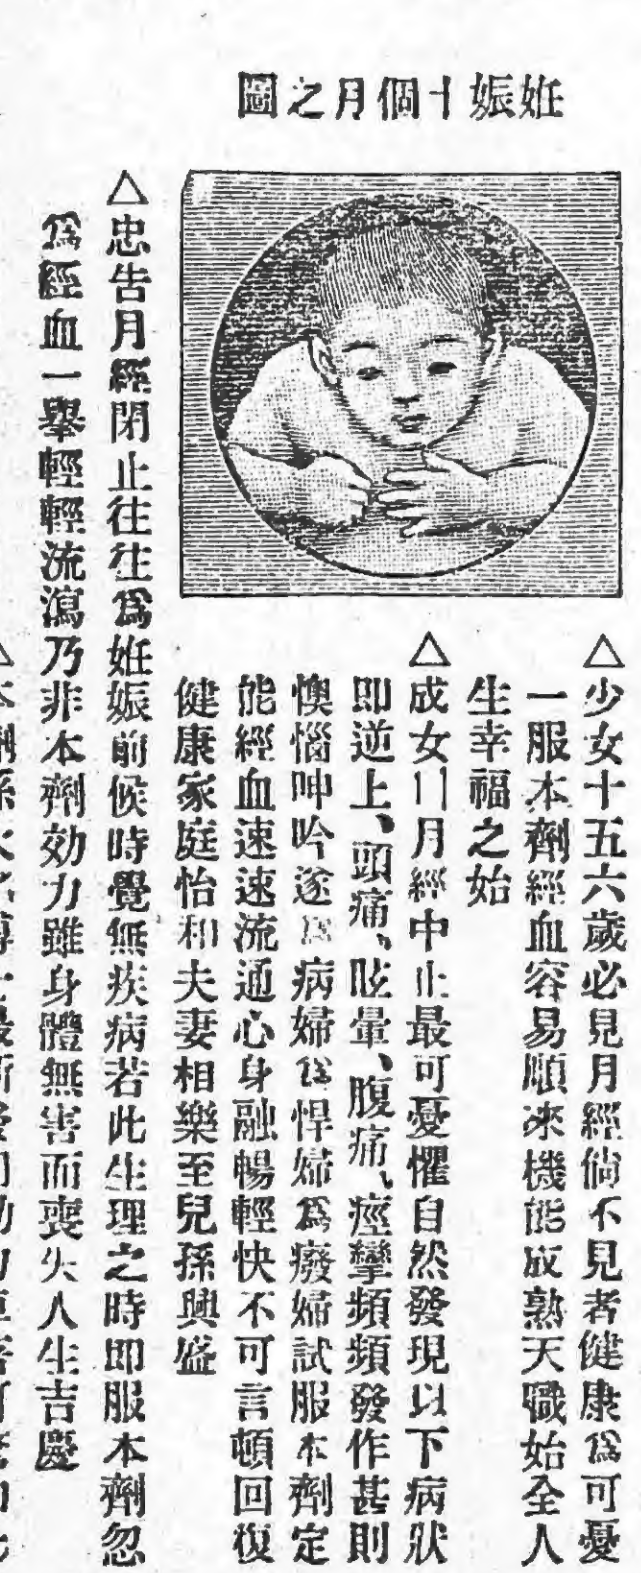 姙娠十個月之圖
△少女十五六歲必見月經倘不見者健康爲可憂
一服本劑經血容易順來機能成熟天職始全人
生幸福之始
△成女月經中止最可憂懼自然發現以下病狀
即逆上、頭痛、眩暈、腹痛、痙攣頻頻發作甚則
懊惱呻吟遂爲病婦爲悍婦爲廢婦試服本劑定
能經血速速流通心身融暢輕快不可言頓回復
健康家庭怡和夫妻相樂至兒孫興盛
△忠告月經閉止往往爲姙娠前候時覺無疾病若此生理之時即服本劑忽
爲經血一舉輕輕流瀉乃非本劑効力雖身體無害而喪失人生吉慶